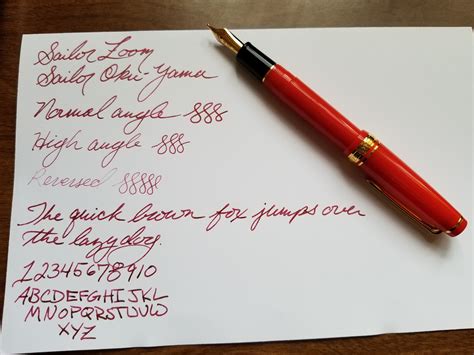 Sailor Zoom
Sailor Oku-Yama
Normal angle §§§
High angle §§§
Reversed §§§§§
The quick brown fox jumps over
the lazy dog.
12345678910
ABCDEFGHIJKL
MNOPQRSTUVW
XYZ